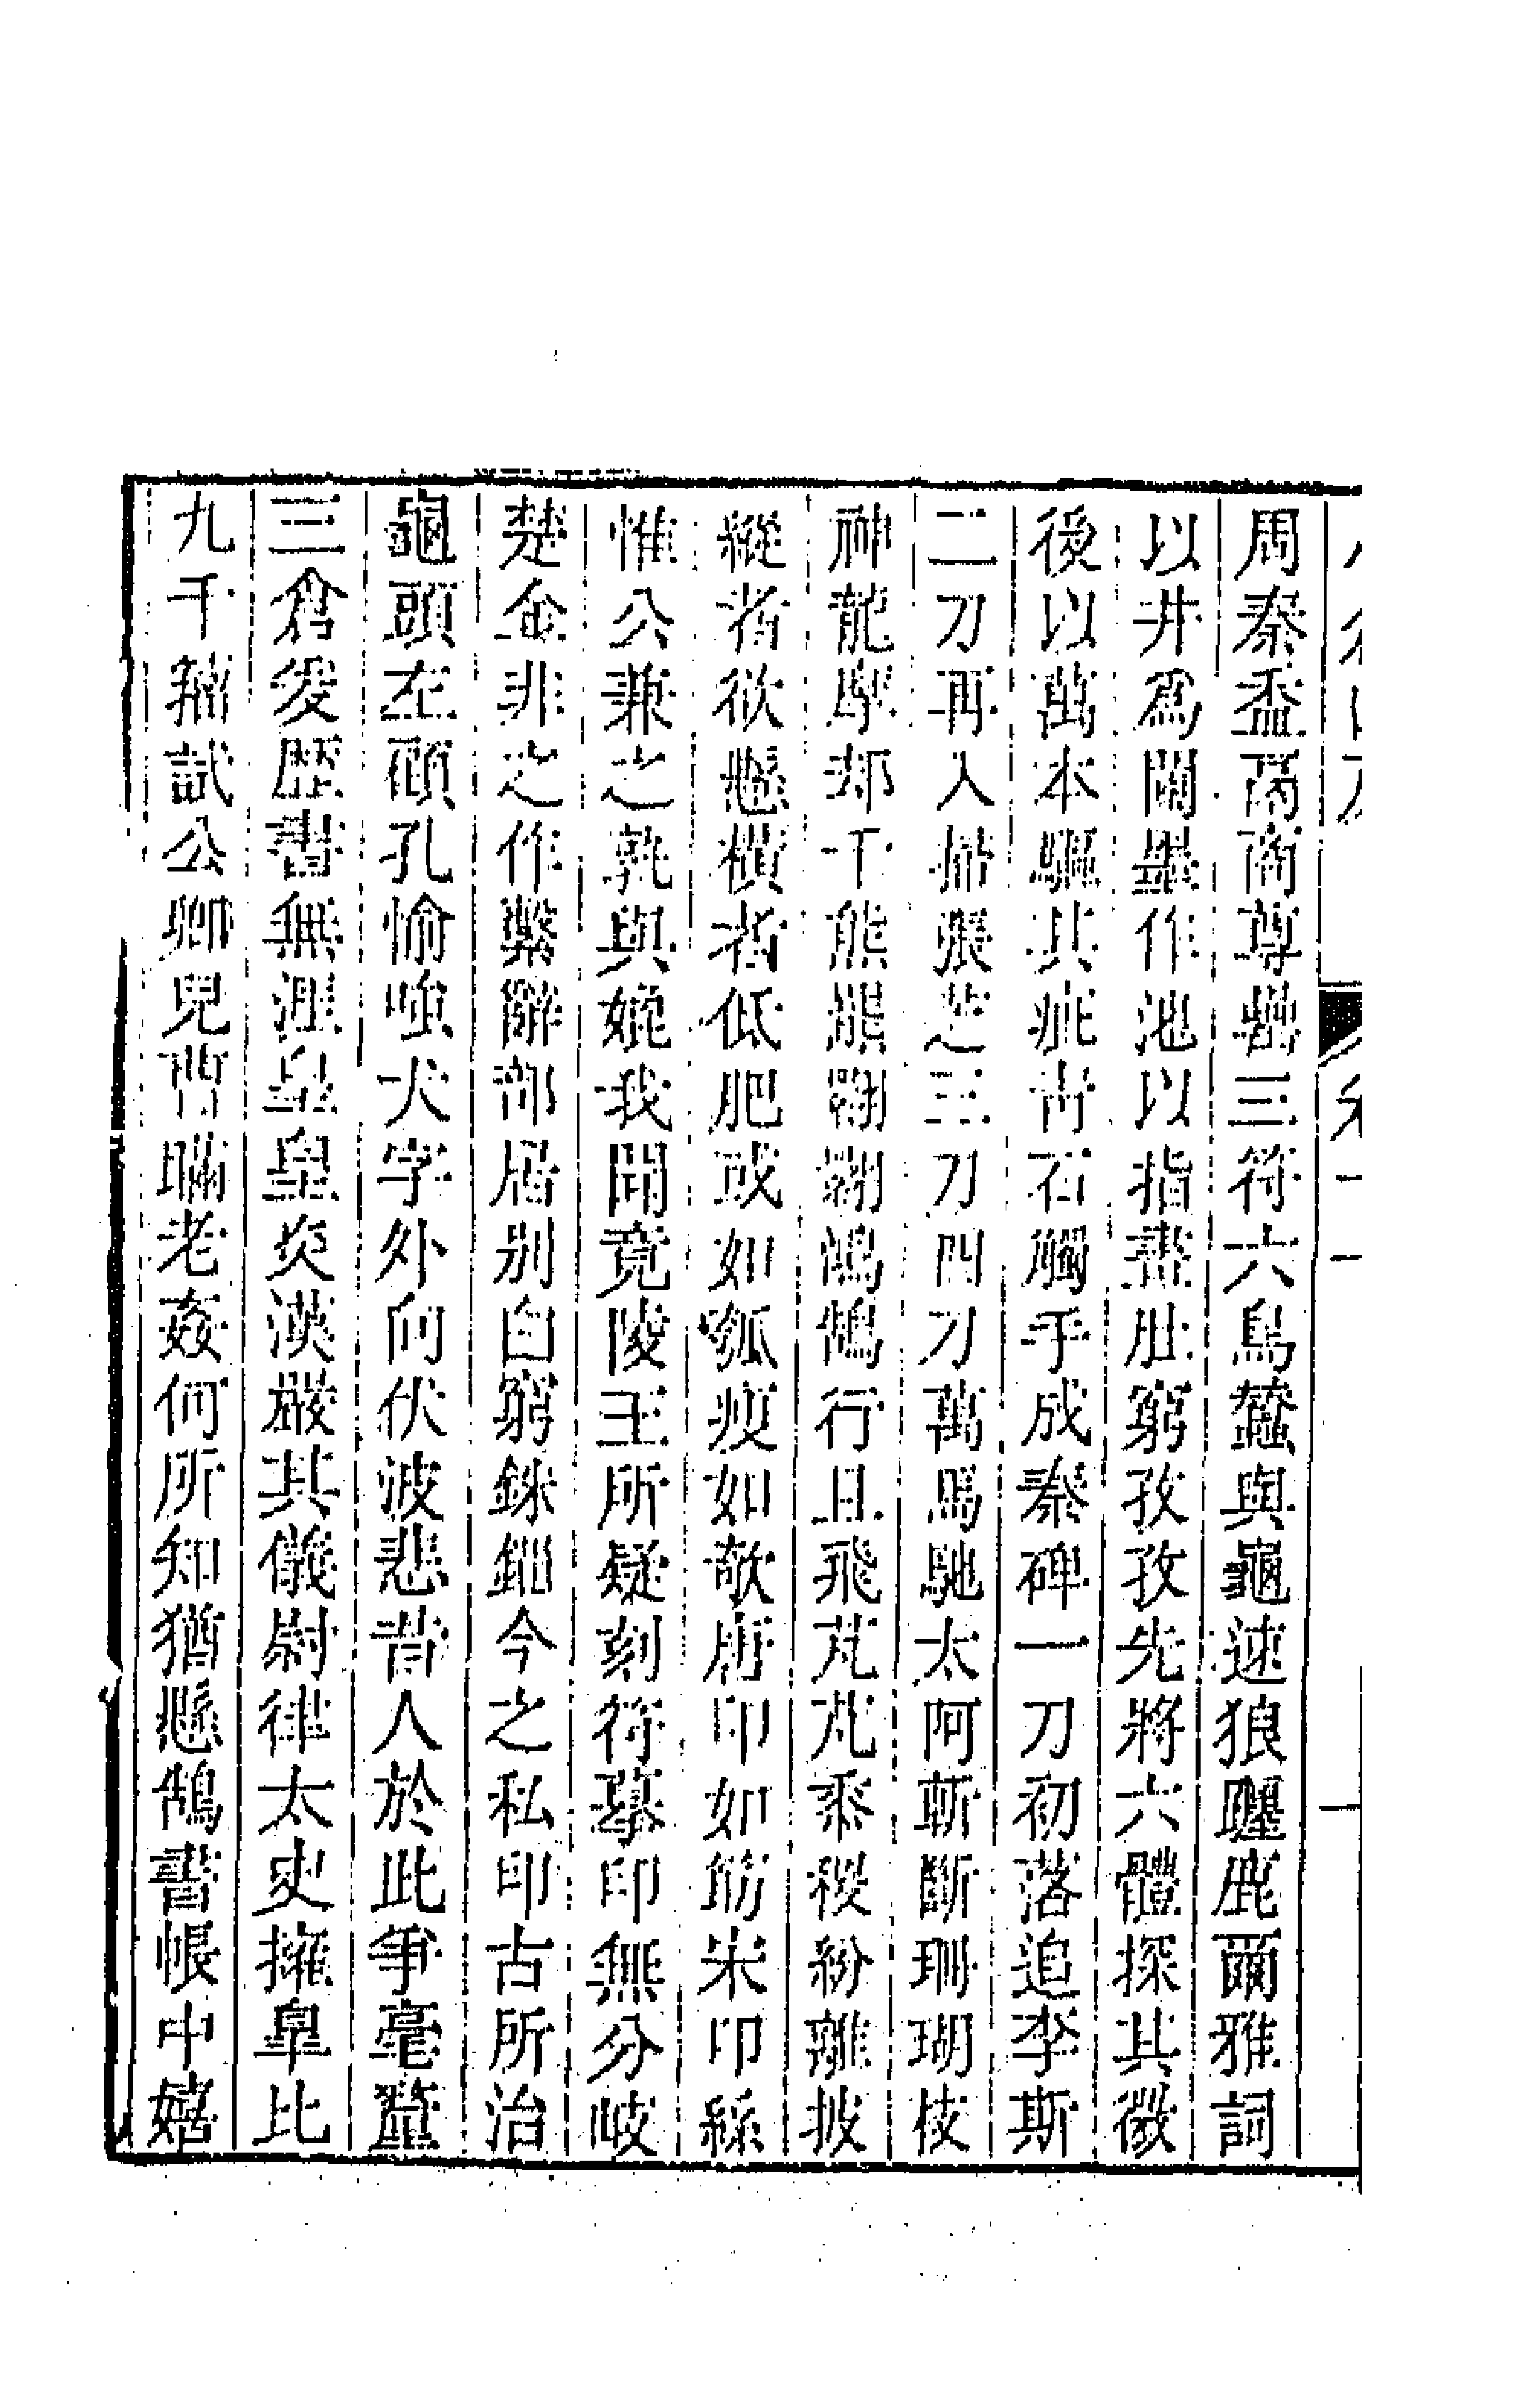 周秦盉鬲商尊罍三符六鳥蠶與龜速狼躔鹿爾雅詞
以井爲闌壘作池以指畫肚窮孜孜先將六體探其微
後以萬本驅其疵青石觸手成秦碑一刀初落追李斯
二刀再入掃張芝三刀四刀萬馬馳太阿斬斷珊瑚枝
神龍駏邛千熊羆翾翾鴻鵠行且飛芃芃黍稷紛離披
縱者欲懸橫者低肥或如瓠瘦如欹唐印如筋宋印絲
惟公兼之孰與媲我聞竟陵王所疑刻符摹印無分岐
楚金非之作繫辭部居别白窮銖錙今之私印古所治
龜頭左顧孔愉嗤犬字外向伏波悲昔人於此爭毫釐
三倉爰歷書無湮皇皇炎漢嚴其儀尉律太史擁皐比
九千籀試公卿兒曹瞞老姦何所知猶懸鵠書帳中嬉